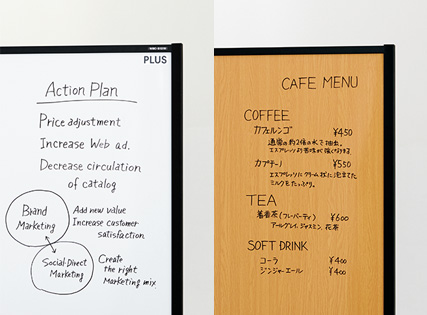 PLUS
Action Plan
Price adjustment
Increase Web ad.
Decrease circulation
of catalog
Brand
Marketing
Add new value
Increase customer
satisfaction
Social-Direct
Marketing
Create
the right
Marketing mix
CAFE MENU
COFFEE
カフェルンゴ ¥450
通常の約2倍の水で抽出。
エスプレッソより苦味が強くなります
カプチーノ ¥550
エスプレッソにクリーム状に泡立てた
ミルクをたっぷり。
TEA
着香茶(フレーバーティ) ¥600
アールグレイ、ジャスミン、花茶
SOFT DRINK
コーラ ¥400
ジンジャーエール ¥400